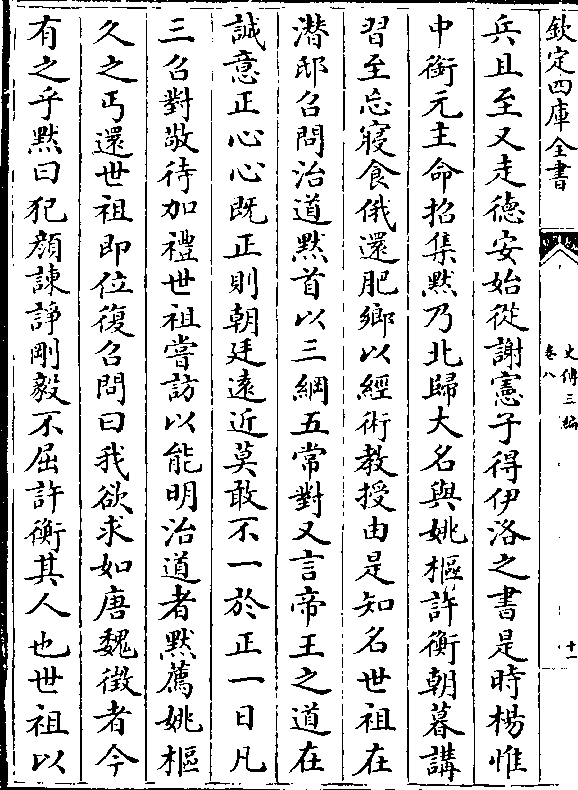 欽定四庫全書
史傳三編
卷八
十一
兵且至又走德安始從謝憲子得伊洛之書是時楊惟
中銜元主命招集黙乃北歸大名與姚樞許衡朝暮講
習至忘寢食俄還肥鄉以經術教授由是知名世祖在
潛邸召問治道黙首以三綱五常對又言帝王之道在
誠意正心心既正則朝廷遠近莫敢不一於正一日凡
三召對敬待加禮世祖嘗訪以能明治道者黙薦姚樞
久之丐還世祖即位復召問曰我欲求如唐魏徵者今
有之乎黙曰犯顔諫諍剛毅不屈許衡其人也世祖以